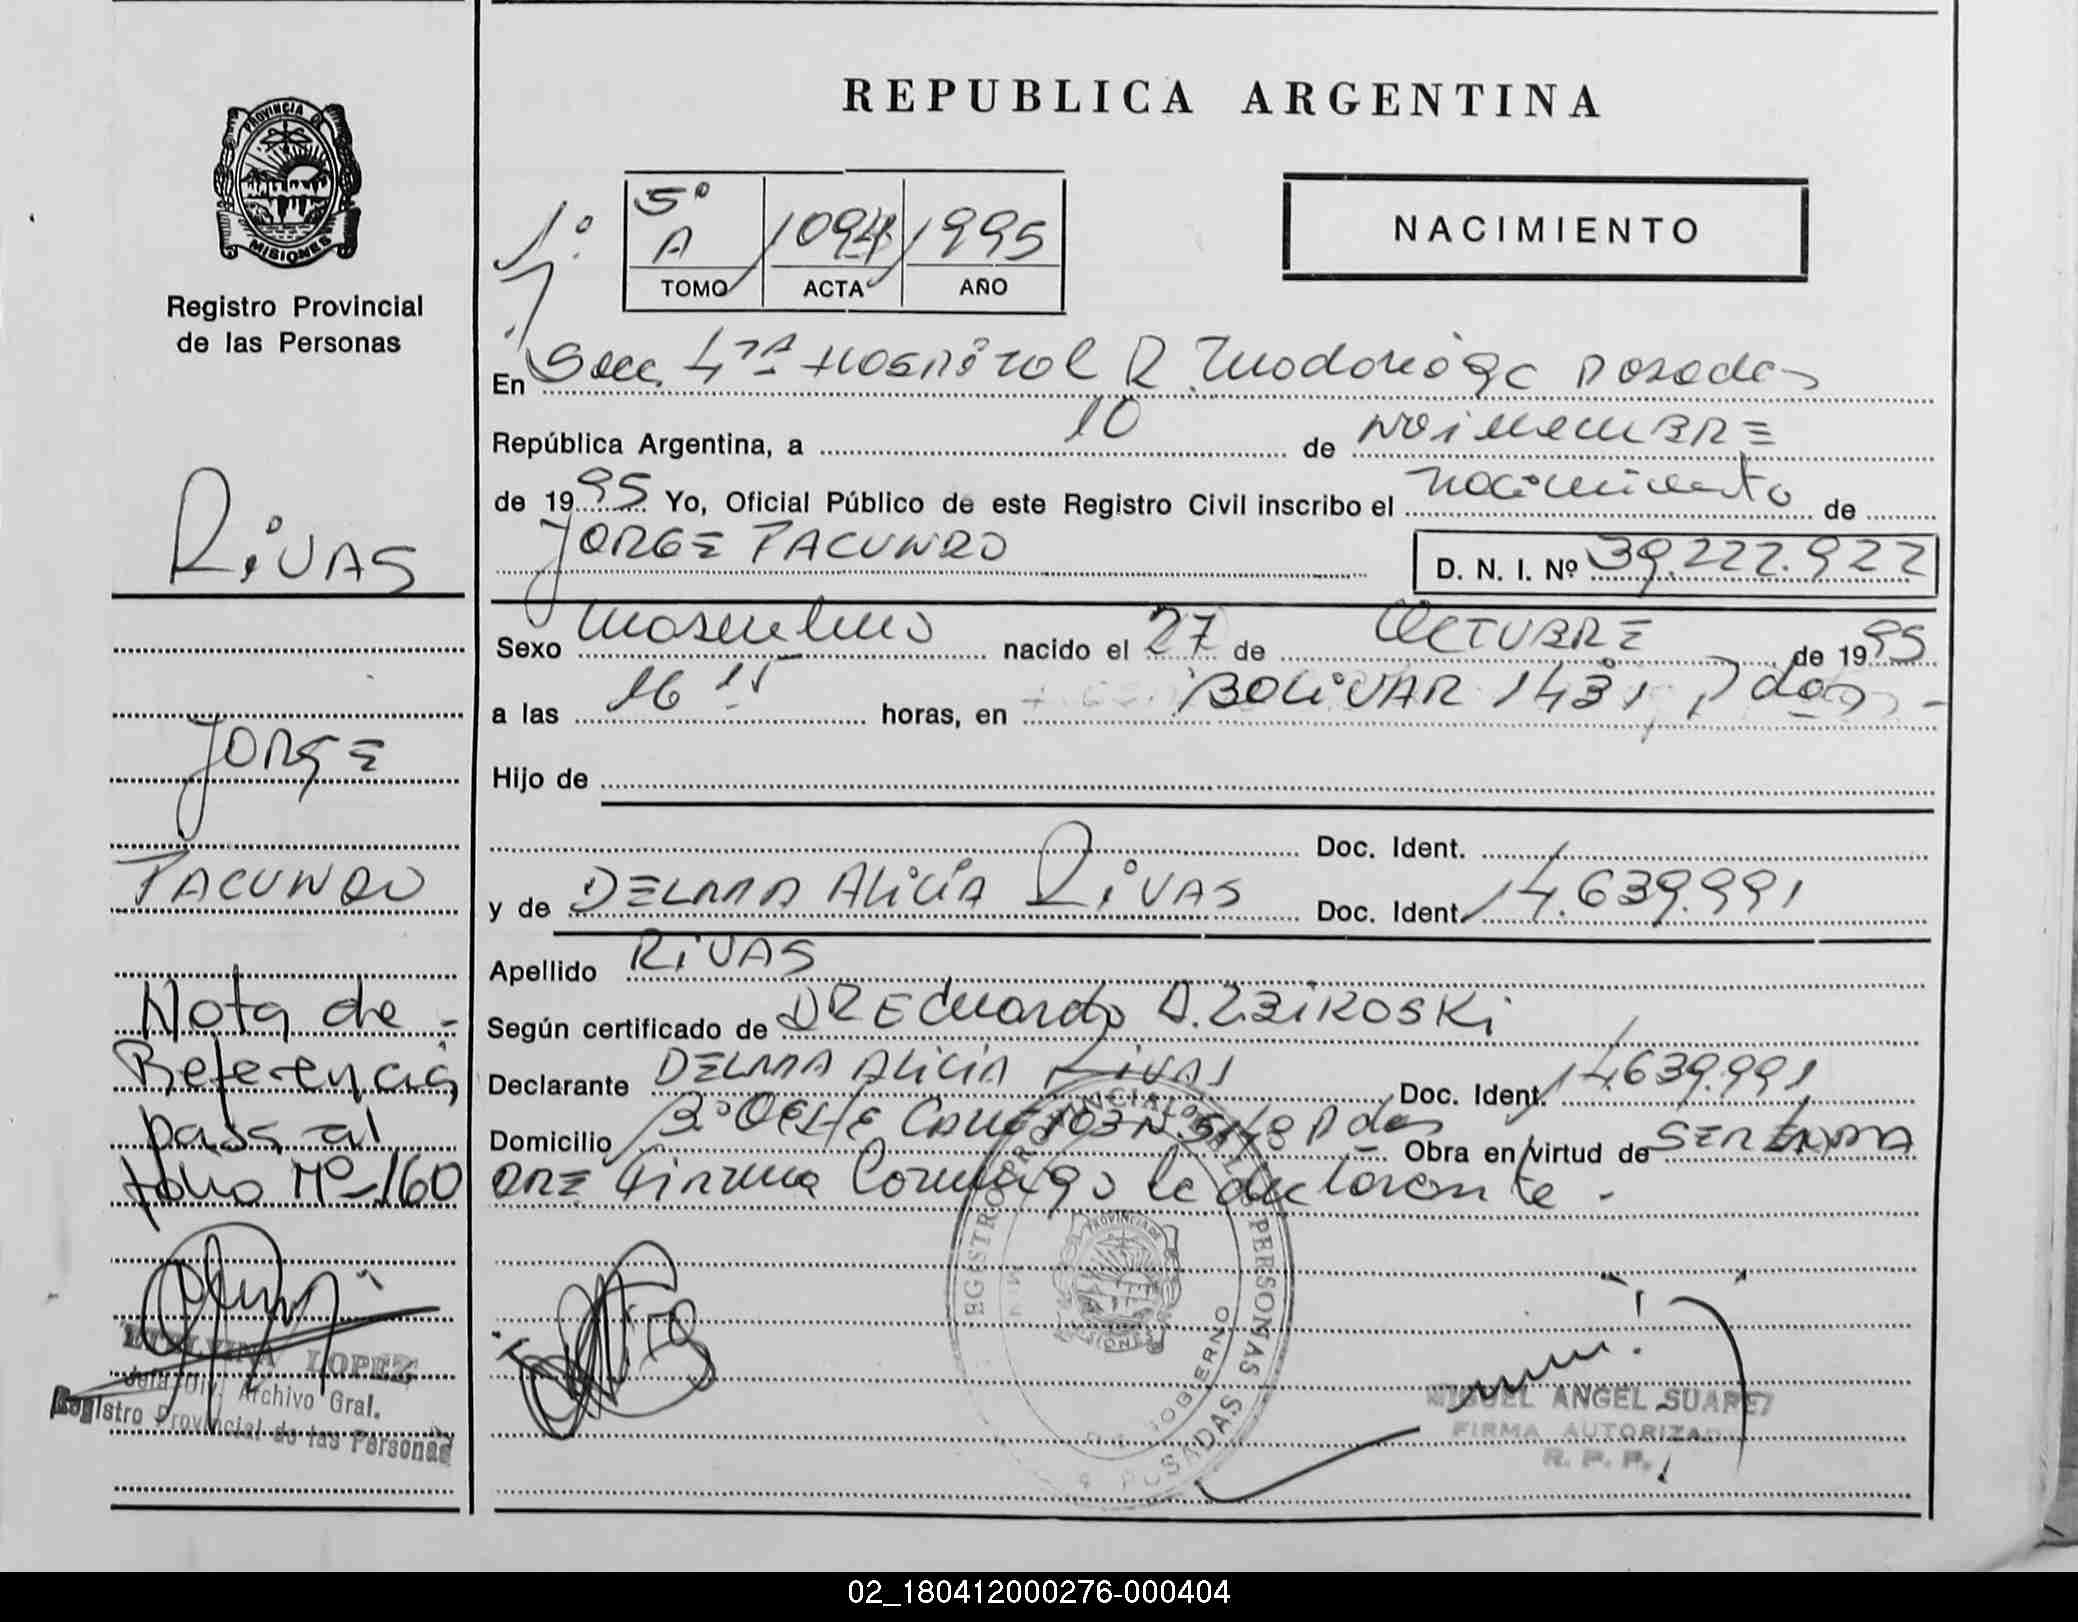 REPUBLICA ARGENTINA
PROVINCIA DE
MISIONES
Registro Provincial
de las Personas
1º
5º
A
1094
1995
TOMO
ACTA
AÑO
NACIMIENTO
En Secc. 4ta Hospital R. Madariaga Posadas
República Argentina, a 10 de NOVIEMBRE
de 1995 Yo, Oficial Público de este Registro Civil inscribo el nacimiento de
JORGE FACUNDO
D. N. I. Nº 39.222.922
Sexo Masculino nacido el 27 de OCTUBRE de 1995
a las 16 15 horas, en BOLIVAR 1431, Pdas
Hijo de
Doc. Ident.
y de DELMA ALICIA RIVAS Doc. Ident. 14.639.991
Apellido RIVAS
Según certificado de DR Eduardo A.
Declarante DELMA ALICIA RIVAS Doc. Ident. 14.639.991
Domicilio OESTE Pdas Obra en virtud de
QUE Firma Conmigo la declarante.
RIVAS
JORGE
FACUNDO
Nota de
Referencia
pasa al
folio Nº 160
LOPEZ
Jefa Div. Archivo Gral.
Registro Provincial de las Personas
REGISTRO PROVINCIAL DE LAS PERSONAS
POSADAS
PROVINCIA DE
MISIONES
MIGUEL ANGEL SUAREZ
FIRMA AUTORIZADA
R. P. P.
02_180412000276-000404